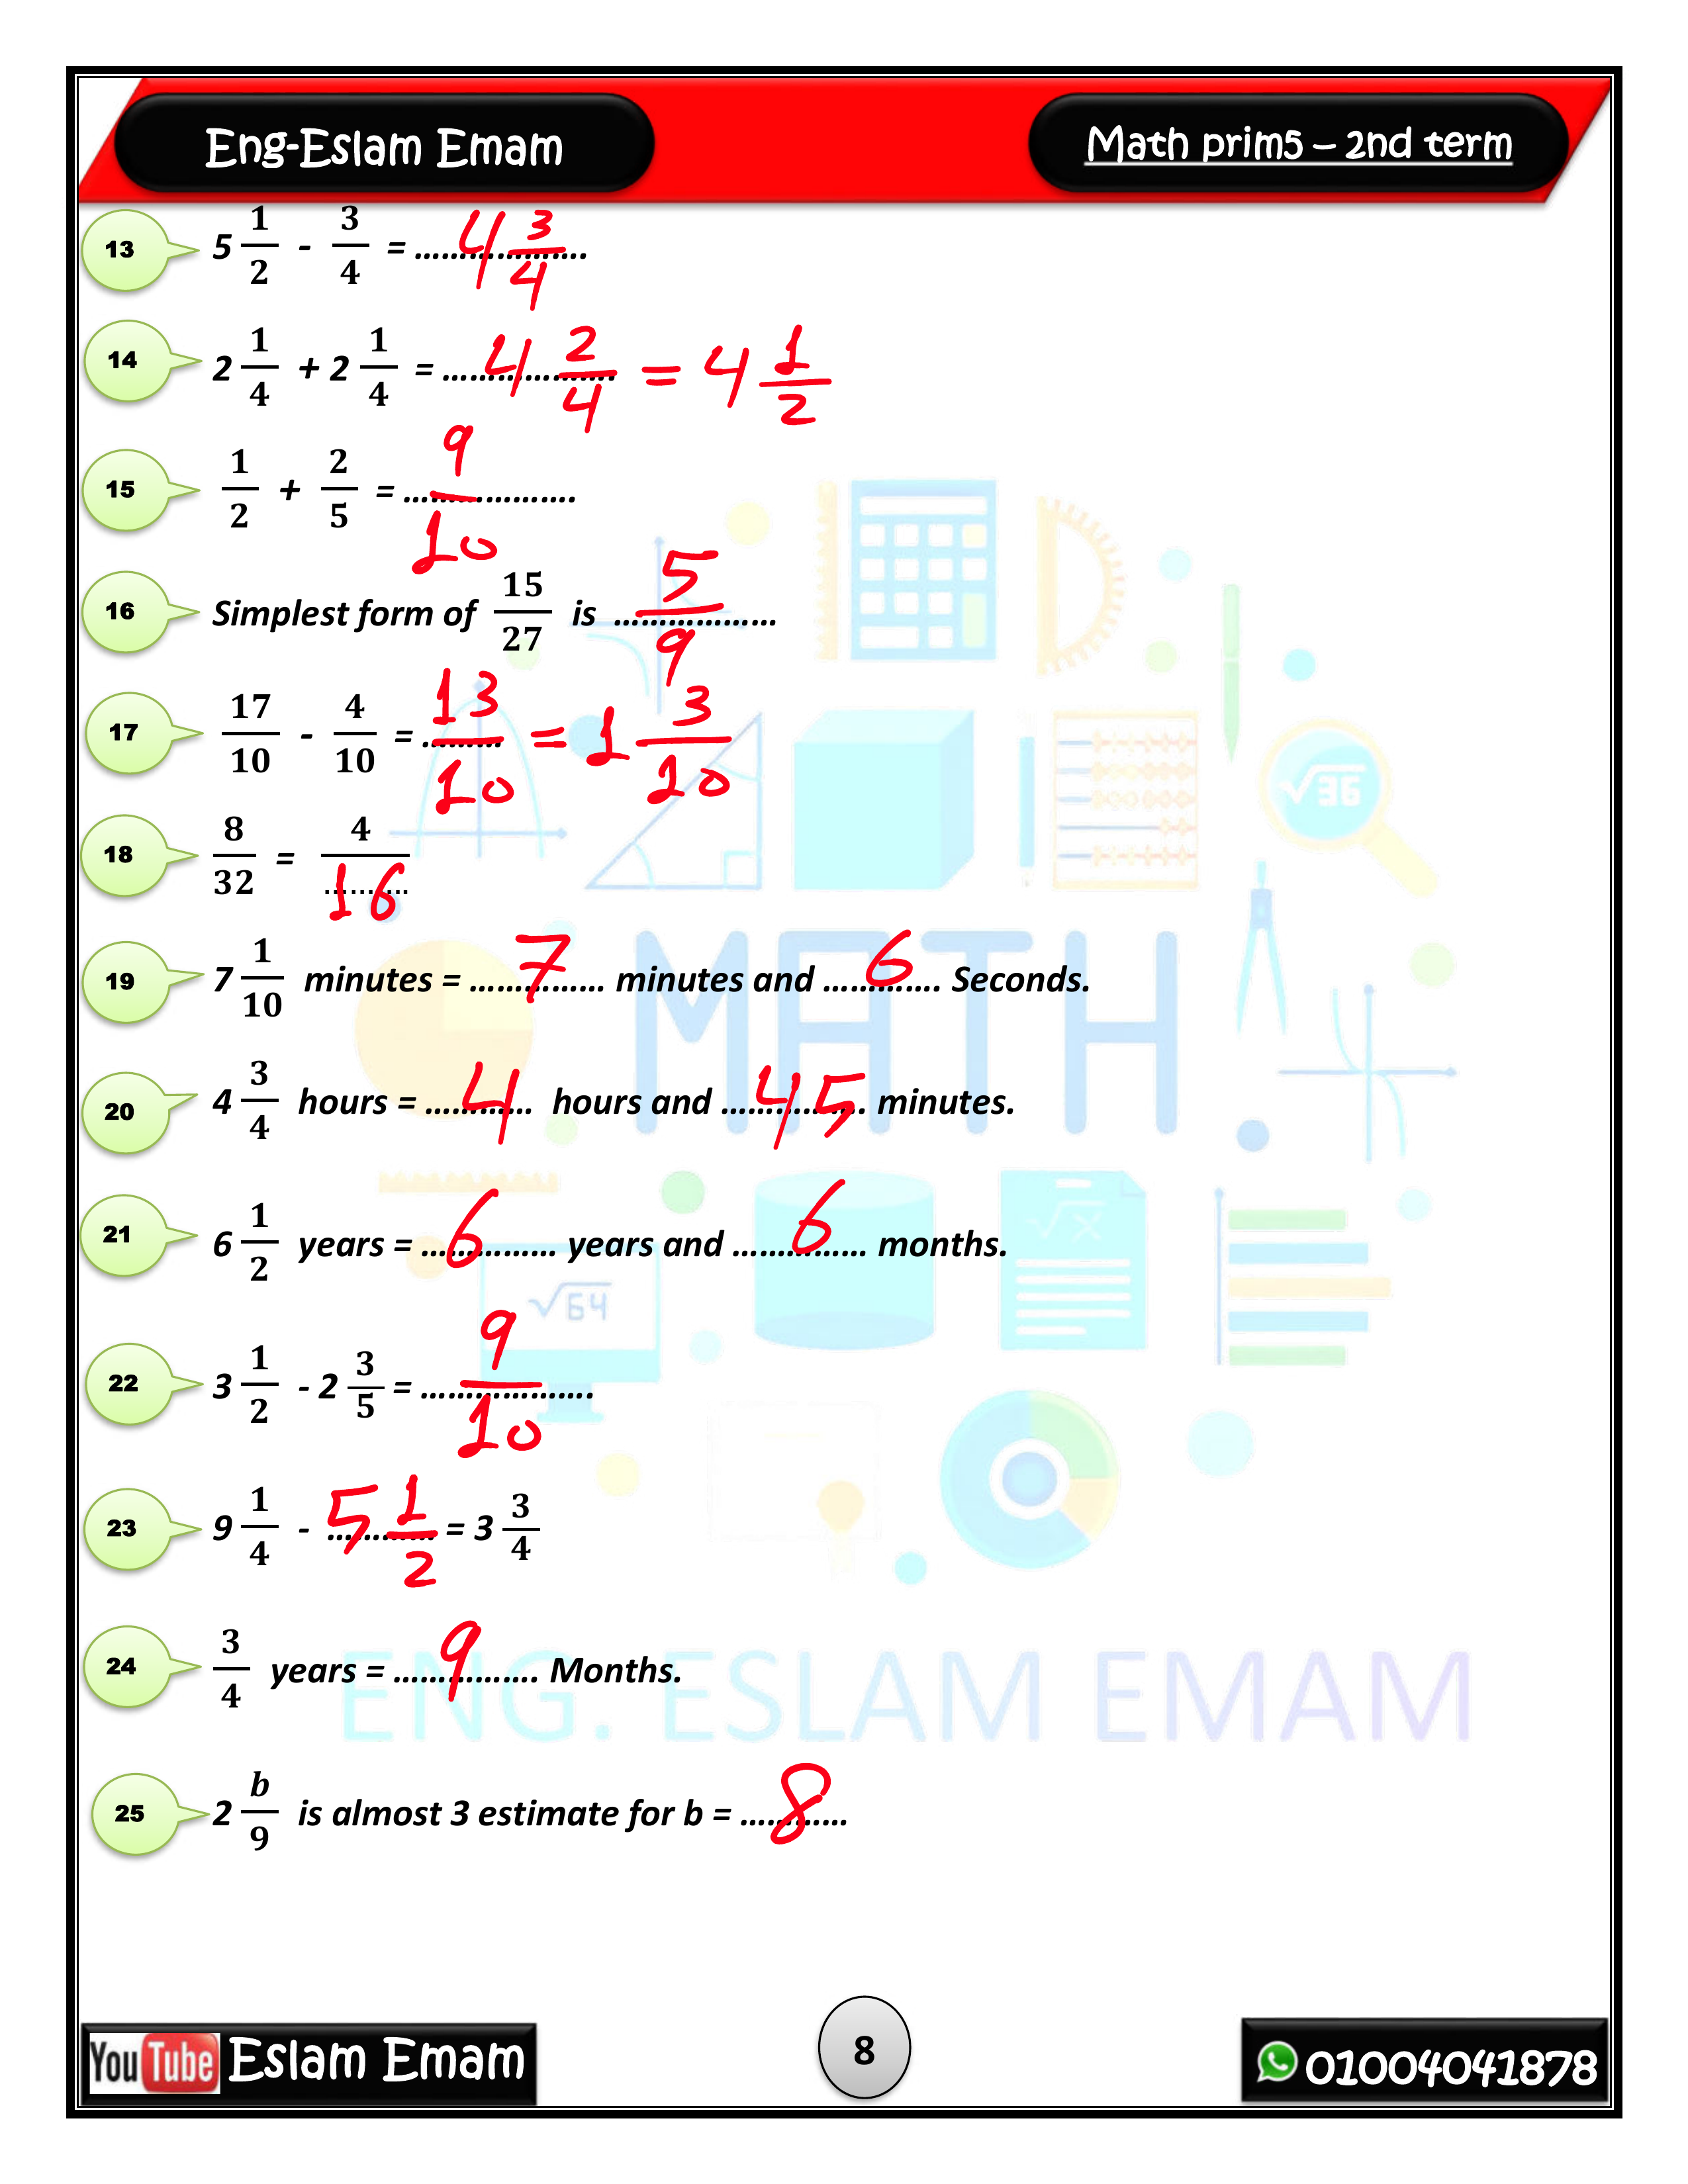 Eng-Eslam Emam
Math prim5 – 2nd term
13 5 1/2 - 3/4 = ................... 4 3/4
14 2 1/4 + 2 1/4 = ................... 4 2/4 = 4 1/2
15 1/2 + 2/5 = ................... 9/10
16 Simplest form of 15/27 is .................. 5/9
17 17/10 - 4/10 = ......... 13/10 = 1 3/10
18 8/32 = 4/.......... 16
19 7 1/10 minutes = ...... 7 ...... minutes and ...... 6 ...... Seconds.
20 4 3/4 hours = ...... 4 ...... hours and ...... 45 ...... minutes.
21 6 1/2 years = ...... 6 ...... years and ...... 6 ...... months.
22 3 1/2 - 2 3/5 = ................... 9/10
23 9 1/4 - ............ 5 1/2 = 3 3/4
24 3/4 years = ...... 9 ...... Months.
25 2 b/9 is almost 3 estimate for b = ............ 8
√36
MATH
√x
√64
ENG. ESLAM EMAM
YouTube Eslam Emam
8
01004041878